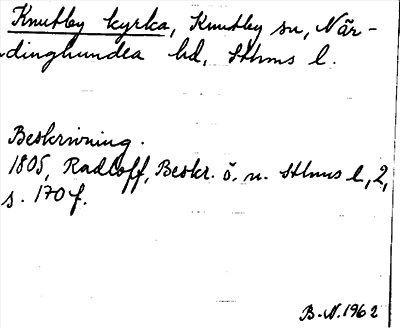 Knutby kyrka, Knutby sn, När-
dinghundra hd, Sthms l.
Beskrivning.
1805, Radloff, Beskr. ö. n. Sthms l, 2,
s. 170 f.
B-N. 1962